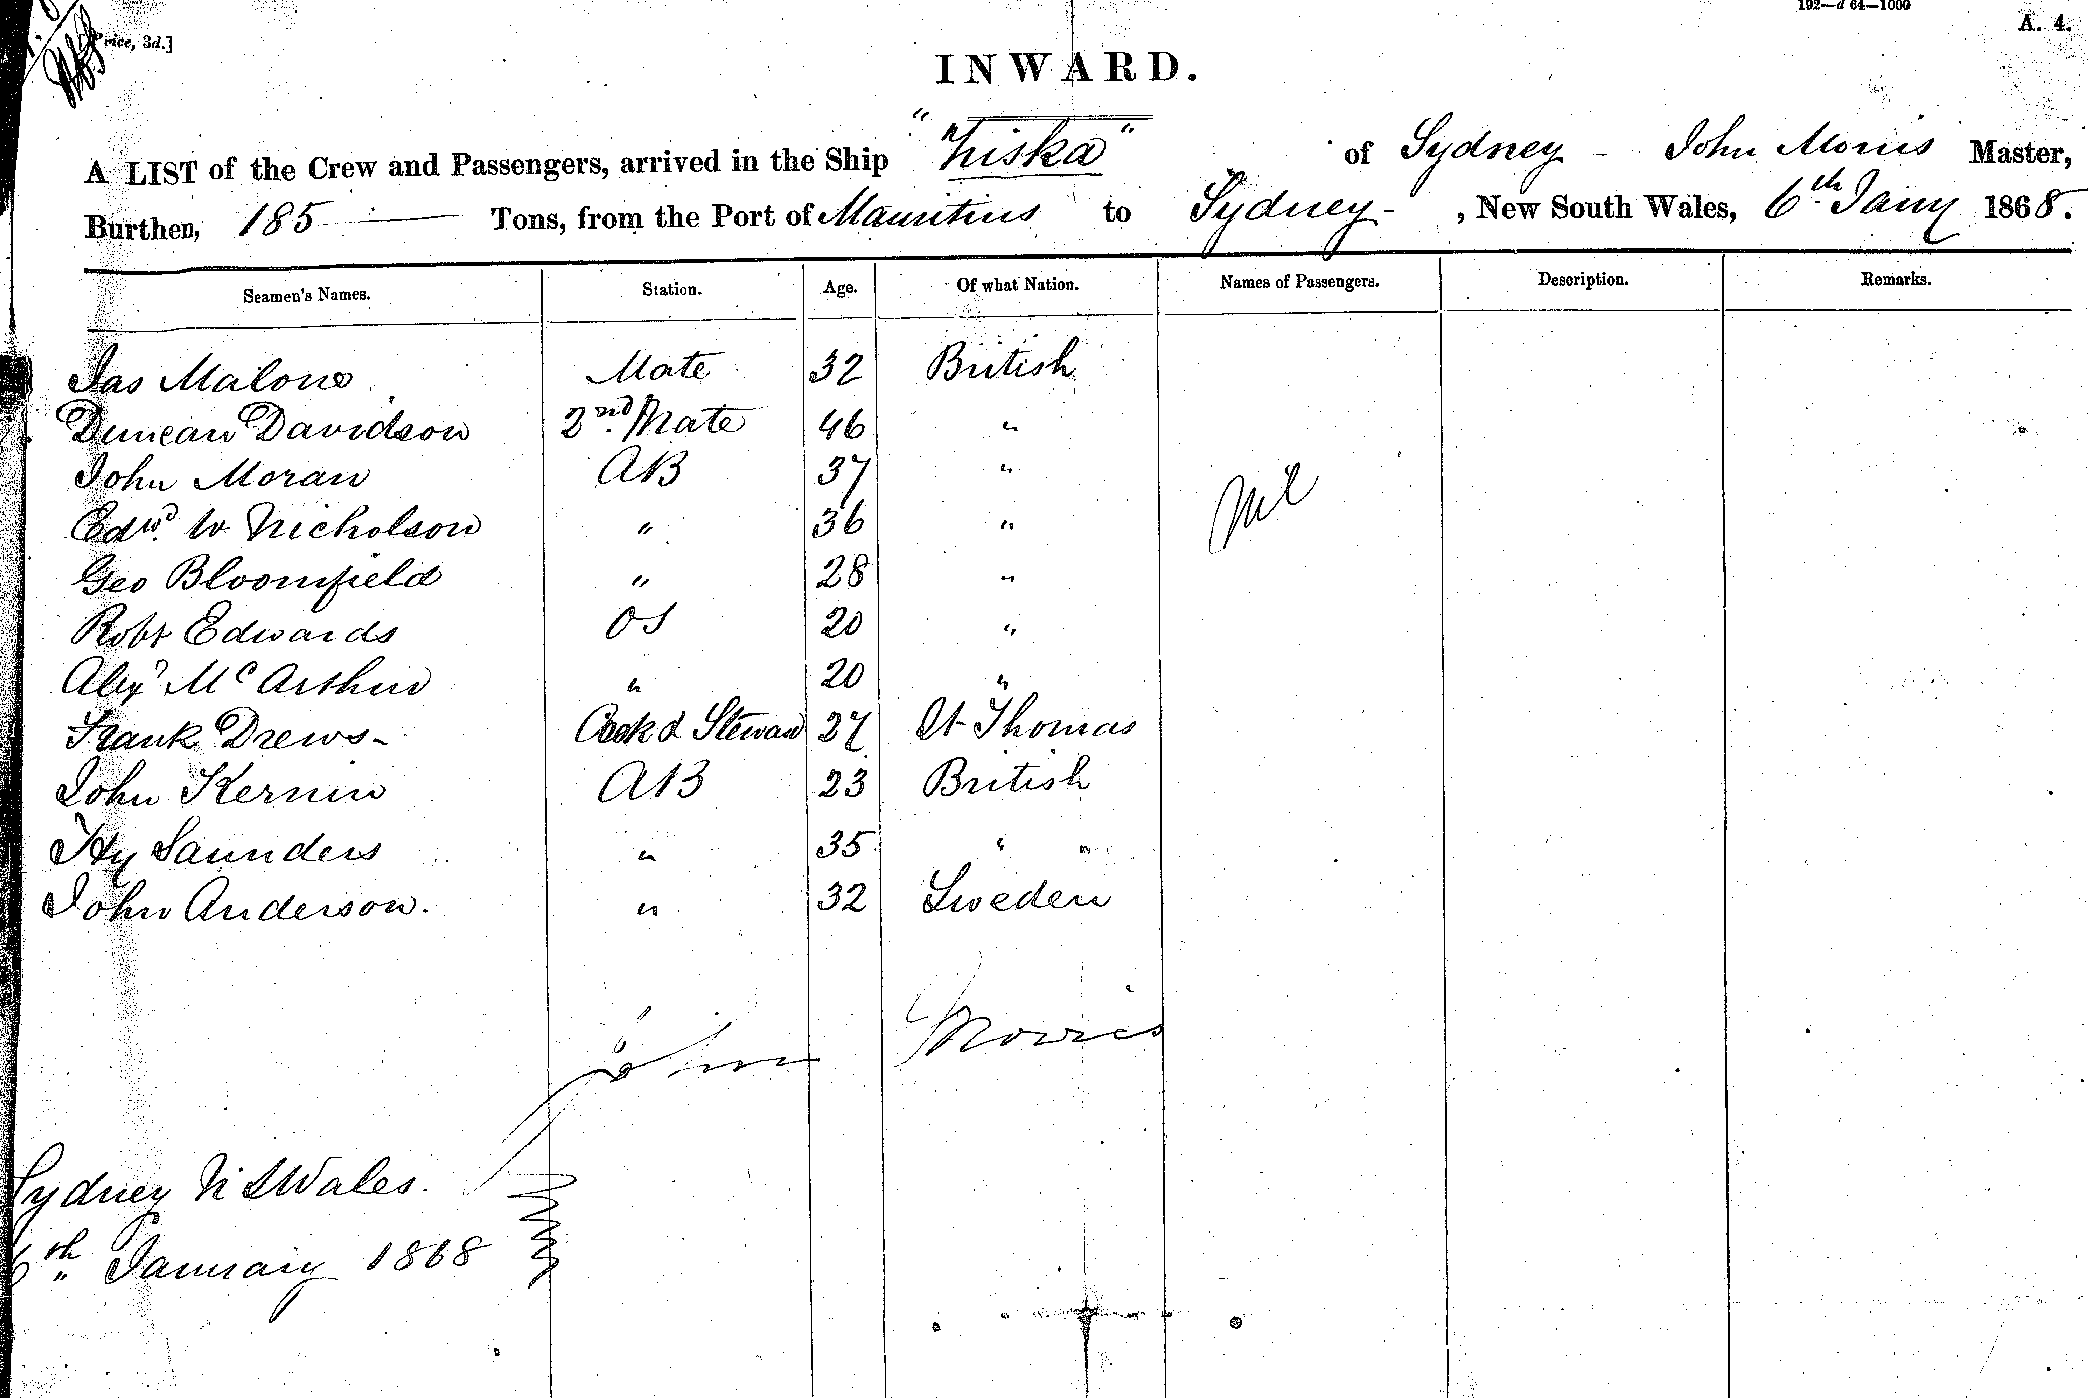 192—d 64—1000
Price, 3d.]
A. 4.
INWARD.
A LIST of the Crew and Passengers, arrived in the Ship "Tiska" of Sydney - John Morris Master,
Burthen, 185 Tons, from the Port of Mauritius to Sydney - , New South Wales, 6th Jany 1868.
Seamen's Names. Station. Age. Of what Nation. Names of Passengers. Description. Remarks.
Jas Malone Mate 32 British
Duncan Davidson 2nd. Mate 46 "
John Moran AB 37 "
Edwd. W Nicholson " 36 "
Nil
Geo Bloomfield " 28 "
Robt Edwards OS 20 "
Alexr McArthur " 20 "
Frank Drews - Cook & Steward 27 St Thomas
John Kernin AB 23 British
Hy Saunders " 35 " "
John Anderson. " 32 Sweden
John Morris
Sydney N S Wales.
6th January 1868